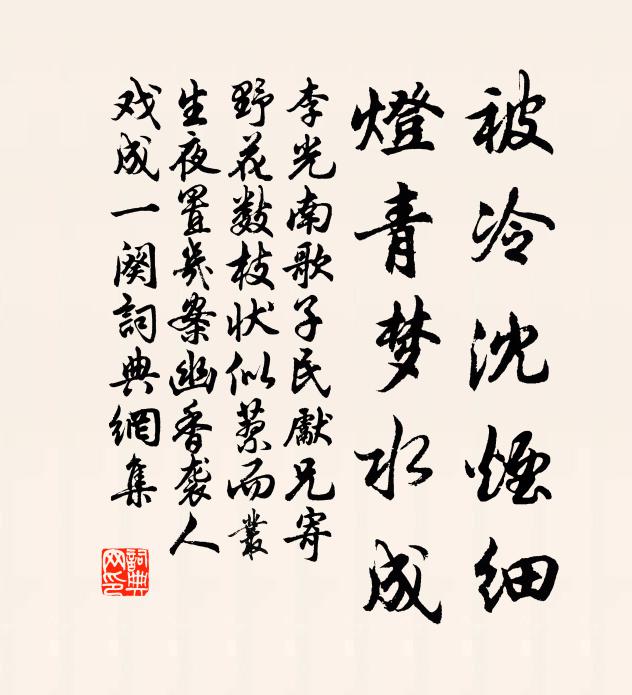 被冷沈煙细
燈青梦水成
李光南歌子民獻兄寄
野花数枝状似蔂而叢
生夜置幾案幽香袭人
戏成一阕詞典網集
詞典网印